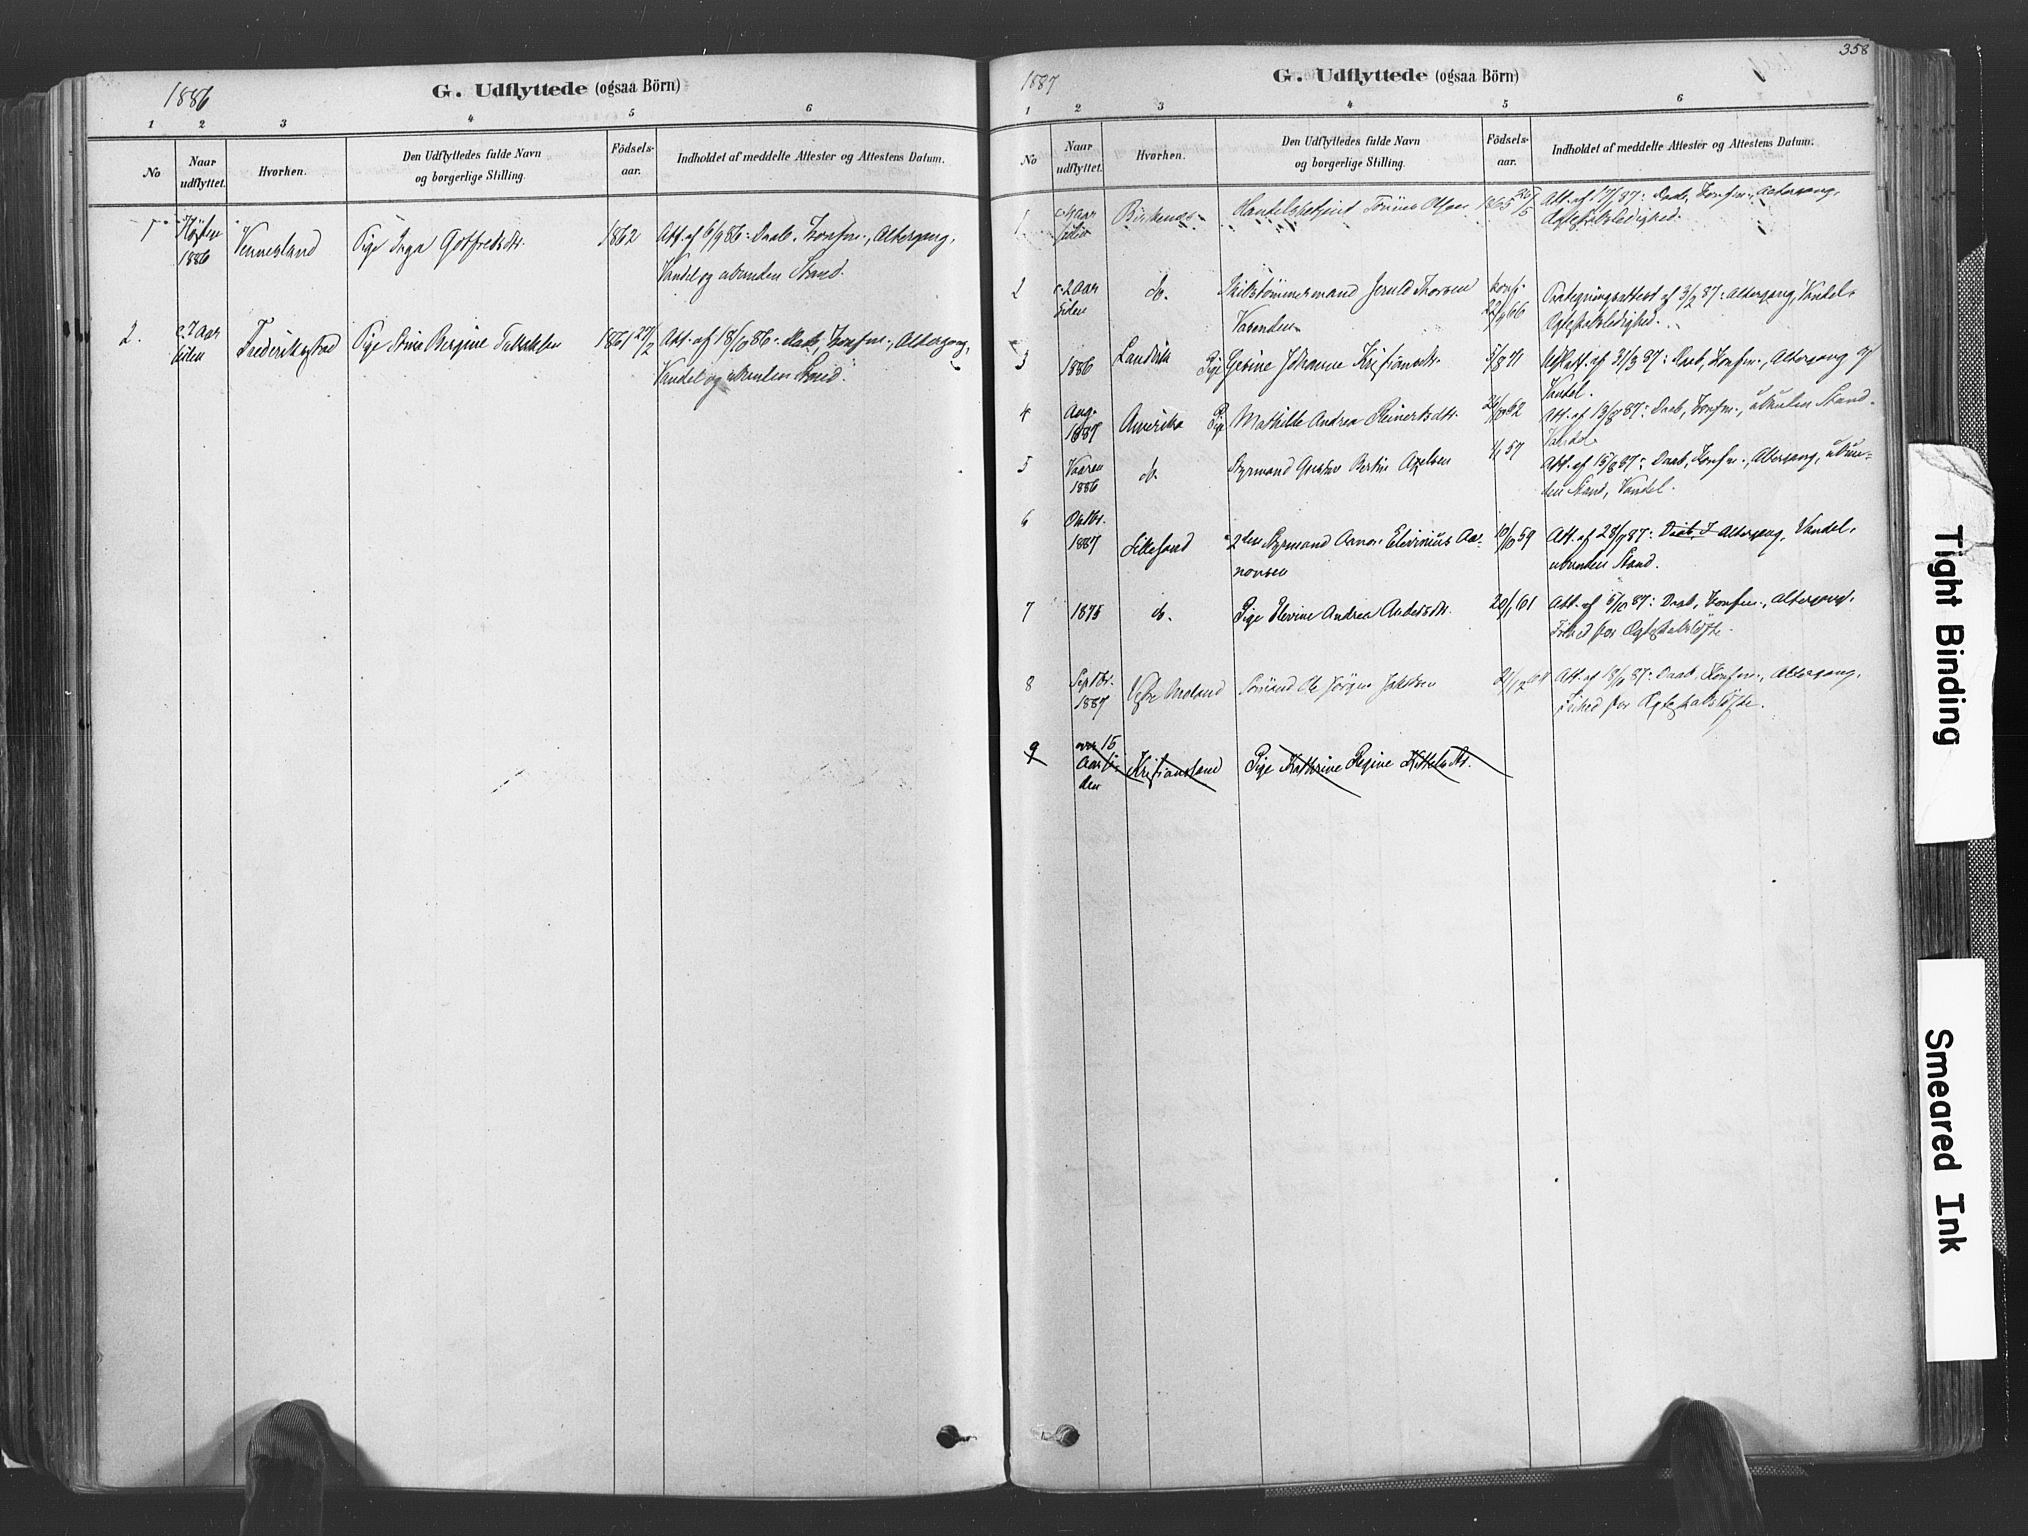 1886
G. Udflyttede (ogsaa Börn)
1 2 3 4 5 6
No
Naar
udflyttet.
Hvorhen.
Den Udflyttedes fulde Navn
og borgerlige Stilling.
Födsels-
aar.
Indholdet af meddelte Attester og Attestens Datum.
1
Høsten
1886
Vennesland
Pige Inga Gotfredsdtr.
1862
Att. af 6/9 86: Daab, Konfm., Altergang,
Vandel og ubunden Stand.
2.
c. 7 Aar
siden
Frederikstad
Pige Stine Bergine
1861 27/2
Att. af 18/10 86: Daab, Konfm., Altergang,
Vandel og ubunden Stand.
358
1887
G. Udflyttede (ogsaa Börn)
1 2 3 4 5 6
No
Naar
udflyttet.
Hvorhen.
Den Udflyttedes fulde Navn
og borgerlige Stilling.
Födsels-
aar.
Indholdet af meddelte Attester og Attestens Datum.
1
Aar
siden
Birkenes
Handelsbetjent Olsen
1865
Att. af 87: Daab, Konfm., Altergang,
Ægteskabsledighed.
2
c. 2 Aar
siden
do.
Skibstømmermand Jeruld Thorsen
konf.
22/9 66
Paategningsattest af 3/2 87: Altergang, Vandel,
Ægteskabsledighed.
3
1886
Landvik
Pige Gesine Johanne Kristiansdtr.
5/8 71
Att. af 31/3 87: Daab, Konfm., Altergang og
Vandel.
4
Aug.
1887
Amerika
Pige Mathilde Andrea Reinertsdtr.
62
Att. af 13/8 87: Daab, Konfm., ubunden Stand.
Vandel.
5
Vaaren
1886
do.
Styrmand Gustav Bertin Axelsen
57
Att. af 15/8 87: Daab, Konfm., Altergang, ubun-
den Stand, Vandel.
6
Oktbr.
1887
Lillesand
2den Styrmand Aanon Elevinius Aa-
nonsen
59
Att. af 28/9 87: Daab, Altergang, Vandel,
ubunden Stand.
7
1875
do.
Pige Elevine Andrea Andersdtr.
20/1 61
Att. af 5/10 87: Daab, Konfm., Altergang,
Frihed for Ægteskabsløfte.
8
Septbr.
1887
Vestre Moland
Sømand Ole Jørgen Jakobsen
21/12
Att. af 87: Daab, Konfm., Altergang,
Frihed for Ægteskabsløfte.
9
over 15
Aar si-
den
Kristiansand
Pige Kathrine Regine Kittelsdtr.
Tight Binding
Smeared Ink